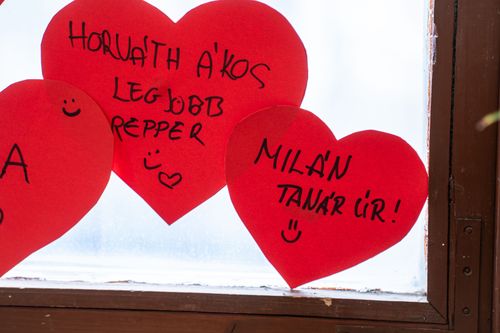 HORVÁTH ÁKOS
LEGJOBB
REPPER
A
MILÁN
TANÁR ÚR!